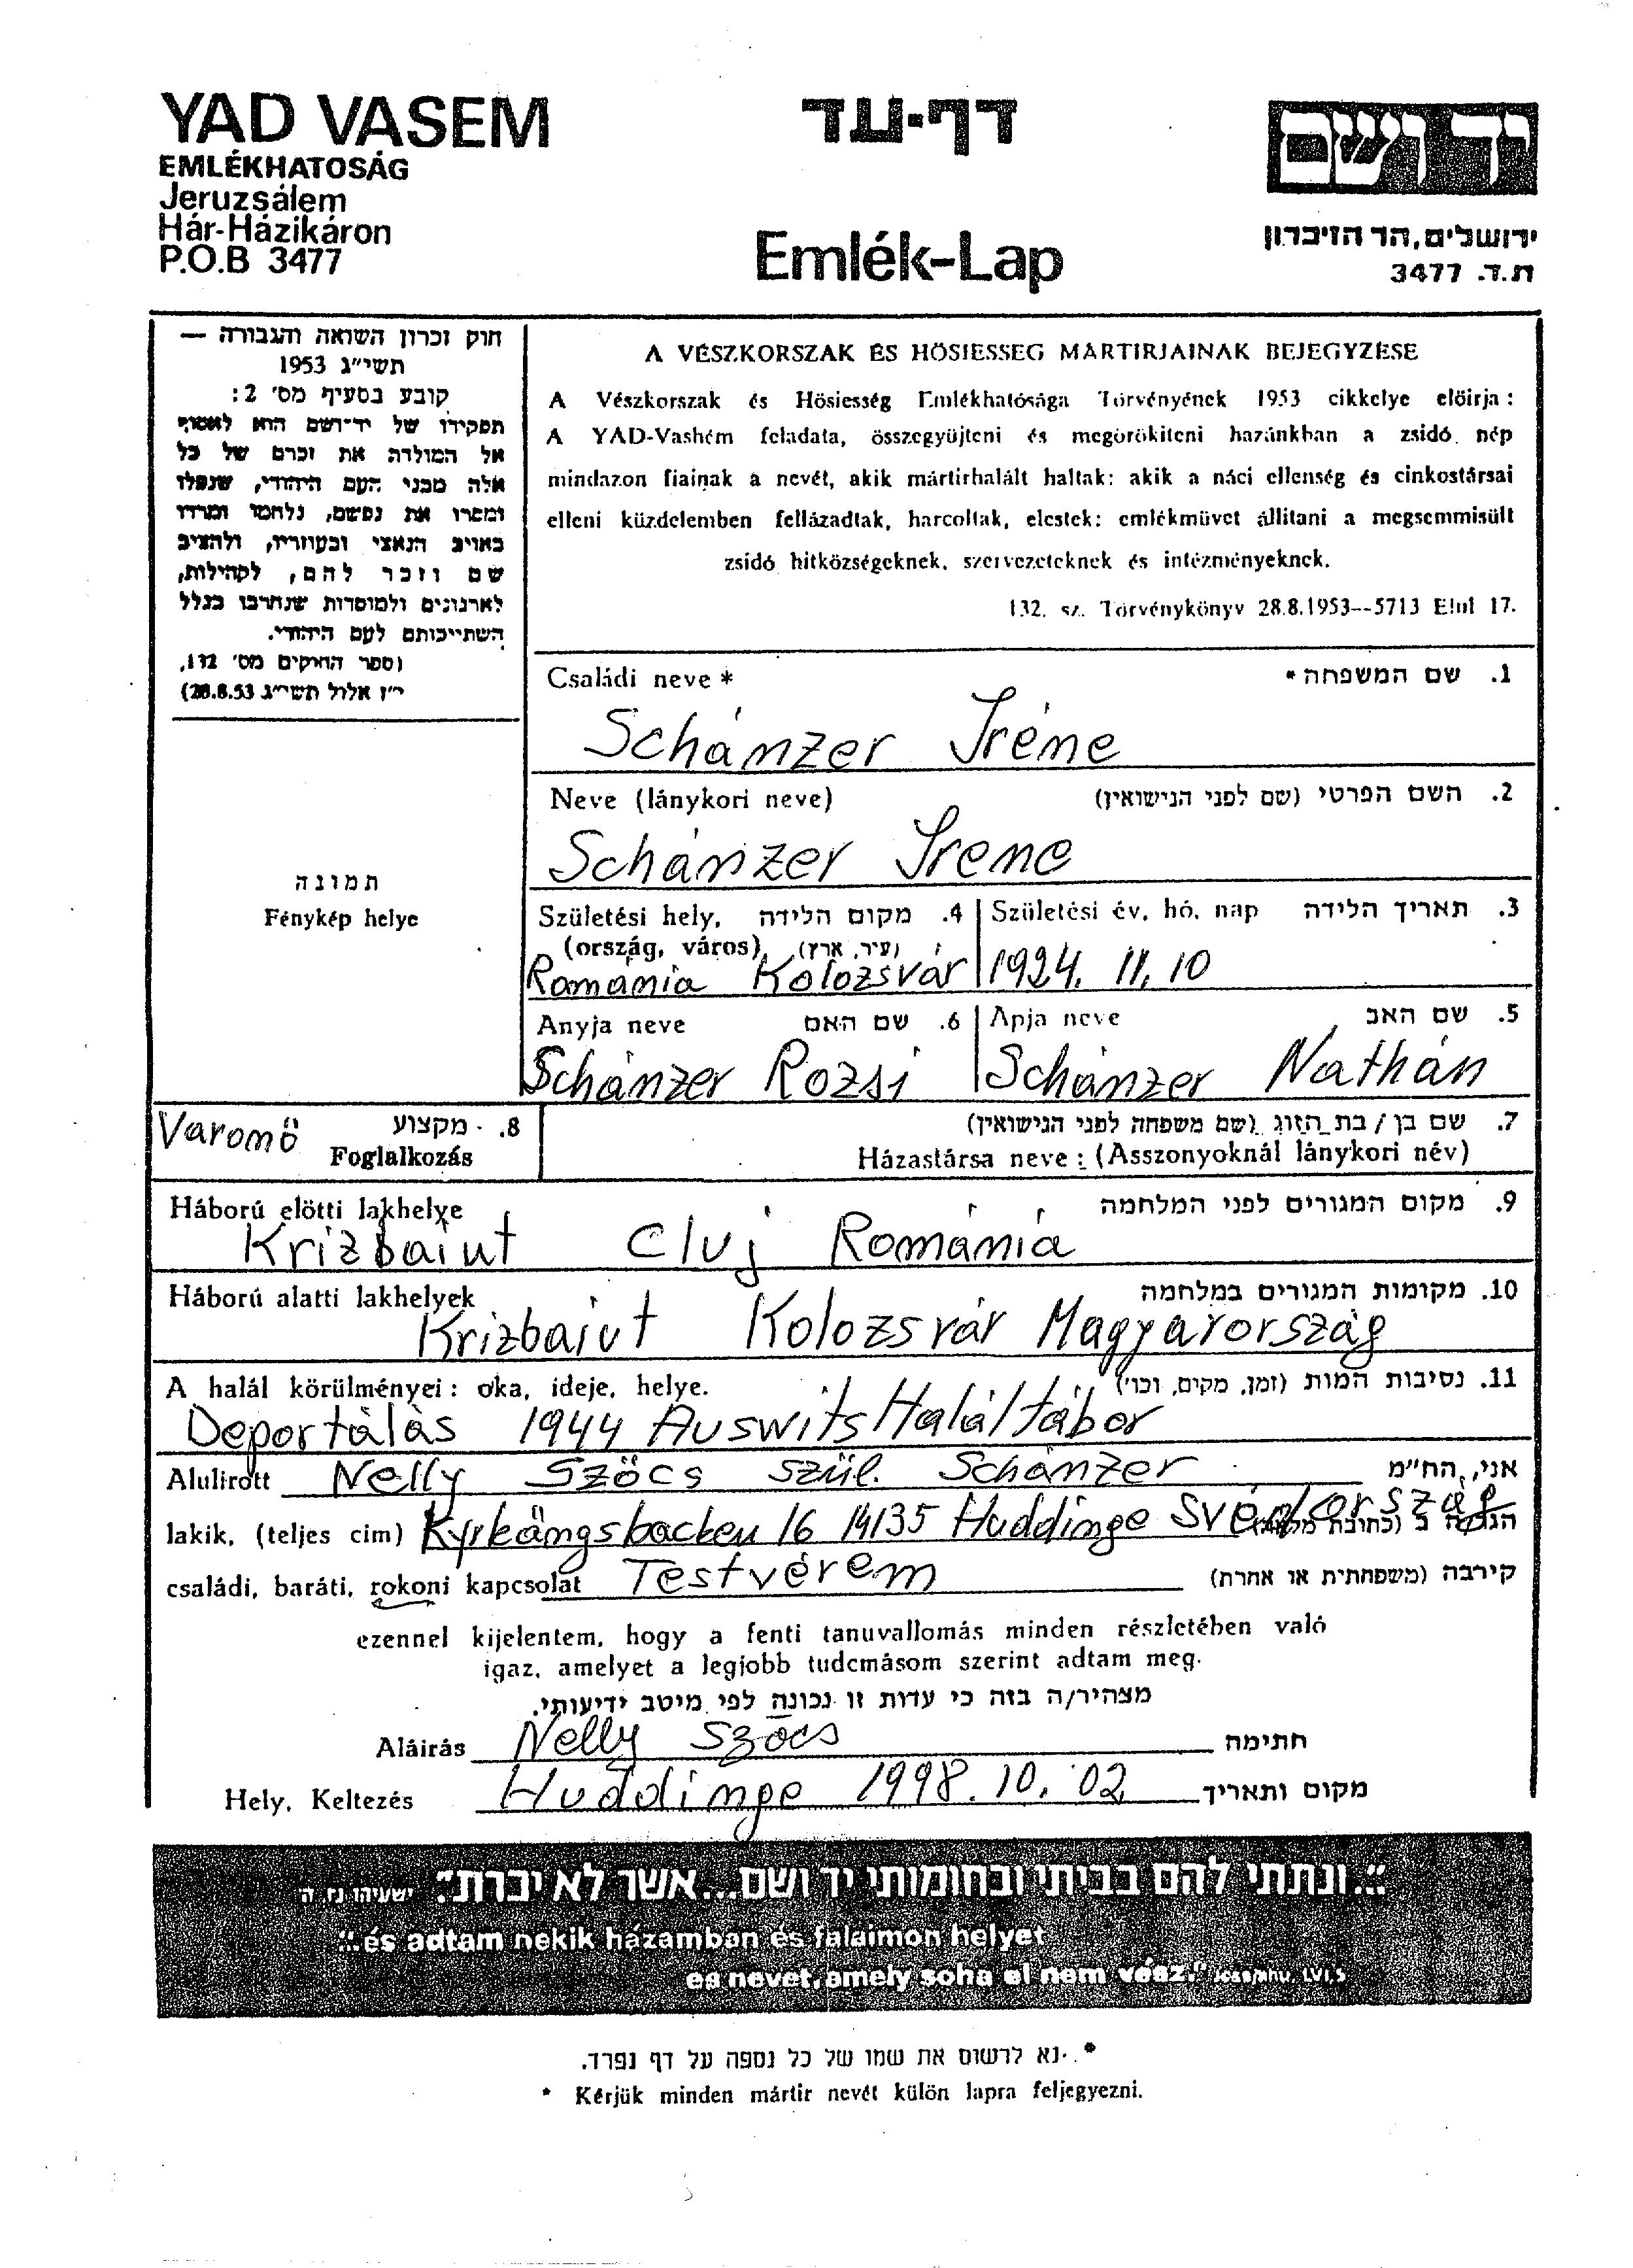 YAD VASEM
EMLÉKHATOSÁG
Jeruzsálem
Hár-Házikáron
P.O.B 3477
דף-עד
Emlék-Lap
יד ושם
ירושלים, הר הזיכרון
ת.ד. 3477
חוק זכרון השואה והגבורה —
תשי"ג 1953
קובע בסעיף מס' 2:
תפקידו של יד-ושם הוא לאסוף
אל המולדת את זכרם של כל
אלה מבני העם היהודי, שנפלו
ומסרו את נפשם, נלחמו ומרדו
באויב הנאצי ובעוזריו, ולהציב
שם וזכר להם, לקהילות,
לארגונים ולמוסדות שנחרבו בגלל
השתייכותם לעם היהודי.
(ספר החוקים מס' 132,
י"ז אלול תשי"ג 28.8.53)
תמונה
Fénykép helye
A VÉSZKORSZAK ÉS HÖSIESSEG MARTIRJAINAK BEJEGYZESE
A Vészkorszak és Hösiesség Emlékhatósága Törvényének 1953 cikkelye elöirja:
A YAD-Vashém feladata, összegyüjteni és megörökiteni hazánkban a zsidó nép
mindazon fiainak a nevét, akik mártirhalált haltak: akik a náci ellenség és cinkostársai
elleni küzdelemben fellázadtak, harcoltak, elestek: emlékmüvet állitani a megsemmisült
zsidó hitközségeknek, szervezeteknek és intézményeknek.
132. sz. Törvénykönyv 28.8.1953--5713 Elul 17.
Családi neve * 1. שם המשפחה *
Schánzer Iréne
Neve (lánykori neve) 2. השם הפרטי (שם לפני הנישואין)
Schánzer Irene
Születési hely, 4. מקום הלידה
(ország, város) (עיר, ארץ)
Romania Kolozsvár
Születési év, hó, nap 3. תאריך הלידה
1924. 11. 10
Anyja neve 6. שם האם
Schánzer Rozsi
Apja neve 5. שם האב
Schánzer Nathán
Varonö 8. מקצוע
Foglalkozás
7. שם בן / בת הזוג (שם משפחה לפני הנישואין)
Házastársa neve: (Asszonyoknál lánykori név)
Háború elötti lakhelye 9. מקום המגורים לפני המלחמה
Krizbaiut Cluj Románia
Háború alatti lakhelyek 10. מקומות המגורים במלחמה
Krizbaiut Kolozsvár Magyarország
A halál körülményei: oka, ideje, helye. 11. נסיבות המות (זמן, מקום, וכו')
Deportálás 1944 Auswits Haláltábor
Alulirott Nelly Szöcs szül. Schánzer אני, הח"מ
lakik, (teljes cim) Kyrkängsbacken 16 14135 Huddinge Svédország
családi, baráti, rokoni kapcsolat Testvérem קירבה (משפחתית או אחרת)
ezennel kijelentem, hogy a fenti tanuvallomás minden részletében való
igaz, amelyet a legjobb tudomásom szerint adtam meg.
מצהיר/ה בזה כי עדות זו נכונה לפי מיטב ידיעותי.
Aláirás Nelly Szöcs חתימה
Hely, Keltezés Huddinge 1998. 10. 02 מקום ותאריך
"...ונתתי להם בביתי ובחומותי יד ושם...אשר לא יכרת" ישעיהו נו ה
"...és adtam nekik házamban és falaimon helyet
es nevet, amely soha el nem vész." Jesajahu, LVI.5
* נא לרשום את שמו של כל נספה על דף נפרד.
* Kérjük minden mártir nevét külön lapra feljegyezni.